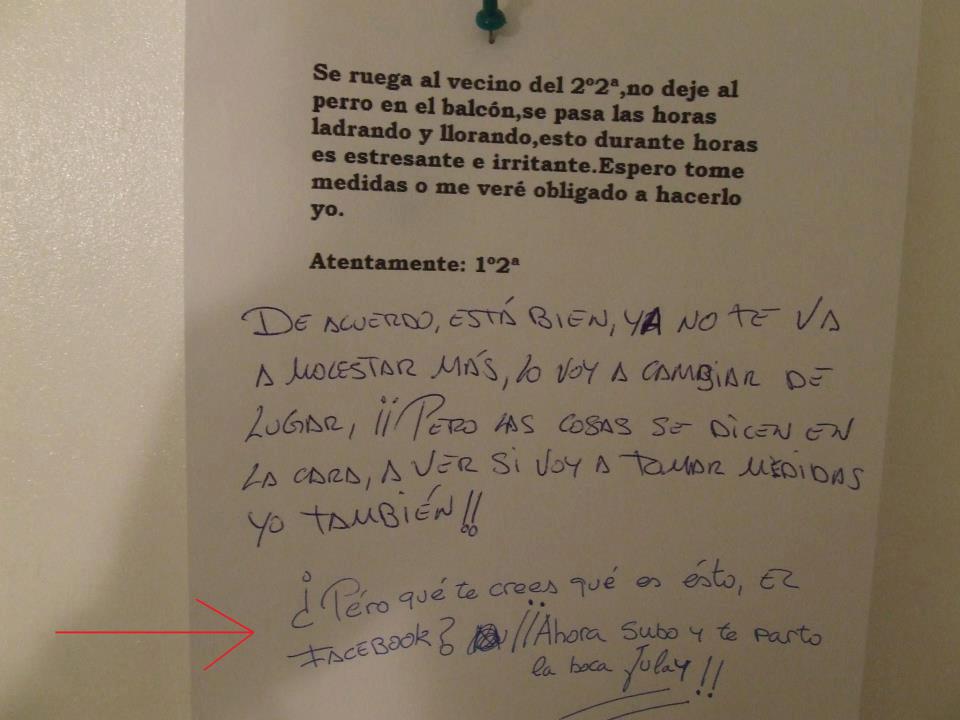 Se ruega al vecino del 2º2ª,no deje al
perro en el balcón,se pasa las horas
ladrando y llorando,esto durante horas
es estresante e irritante.Espero tome
medidas o me veré obligado a hacerlo
yo.
Atentamente: 1º2ª
DE ACUERDO, ESTÁ BIEN, YA NO TE VA
A MOLESTAR MÁS, LO VOY A CAMBIAR DE
LUGAR, ¡¡PERO LAS COSAS SE DICEN EN
LA CARA, A VER SI VOY A TOMAR MEDIDAS
YO TAMBIÉN!!
¿Péro qué te crees qué es ésto, EL
FACEBOOK? ¡¡Ahora subo y te parto
la boca Julay!!